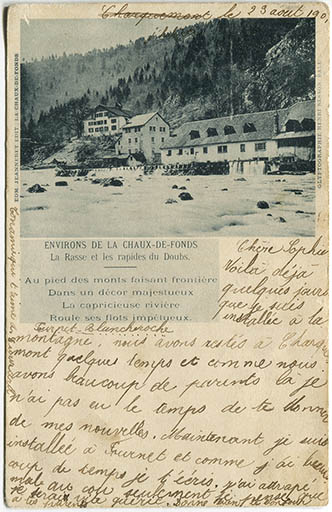 Charquemont le 23 août 190
EDM. JEANNERET EDIT. LA CHAUX-DE-FONDS
ENVIRONS DE LA CHAUX-DE-FONDS
La Rasse et les rapides du Doubs.
Au pied des monts faisant frontière
Dans un décor majestueux
La capricieuse rivière
Roule ses flots impétueux.
Chère Sophie
Voilà déjà
quelques jours
que je suis
installée à la
Blancheroche
montagne, nous avons restés à Charque
mont quelque temps et comme nous
avons beaucoup de parents là je
n'ai pas eu le temps de te donner
de mes nouvelles. Maintenant je suis
installée à Fournet et comme j'ai beau
coup de temps je t'écris. j'ai attrapé
mal au cou seulement je pense que
je serai vite guérie.